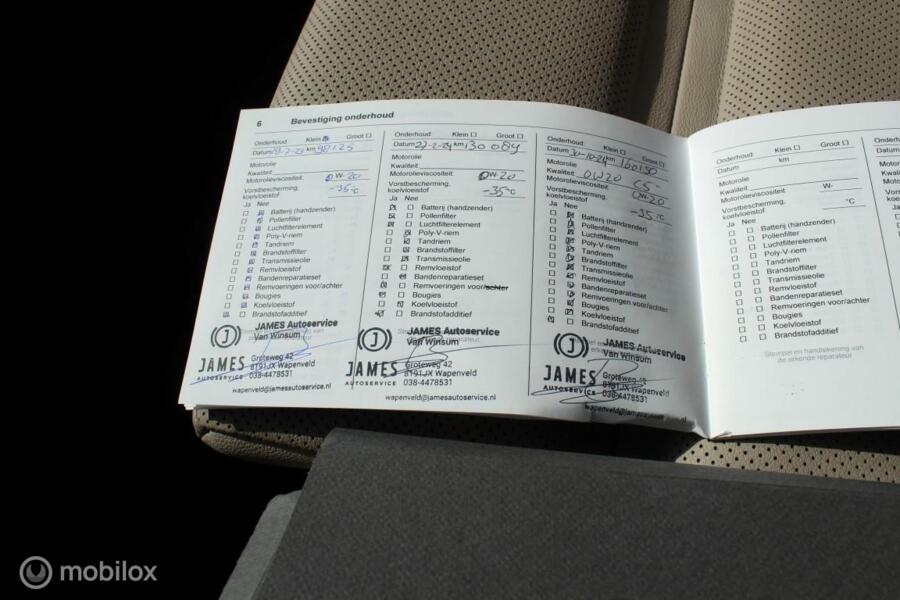 6 Bevestiging onderhoud
Onderhoud: Klein Groot
Datum km
Motorolie
Kwaliteit
Motorolieviscositeit: 0 W- 20
Vorstbescherming, koelvloeistof -35 °C
Ja Nee
Batterij (handzender)
Pollenfilter
Luchtfilterelement
Poly-V-riem
Tandriem
Brandstoffilter
Transmissieolie
Remvloeistof
Bandenreparatieset
Remvoeringen voor/achter
Bougies
Koelvloeistof
Brandstofadditief
JAMES Autoservice
Van Winsum
JAMES
AUTOSERVICE
Groteweg 42
8191JX Wapenveld
038-4478531
wapenveld@jamesautoservice.nl
Onderhoud: Klein Groot
Datum 27-2-24 km 130 084
Motorolie
Kwaliteit
Motorolieviscositeit: 0W-20
Vorstbescherming, koelvloeistof -35 °C
Ja Nee
Batterij (handzender)
Pollenfilter
Luchtfilterelement
Poly-V-riem
Tandriem
Brandstoffilter
Transmissieolie
Remvloeistof
Bandenreparatieset
Remvoeringen voor/achter
Bougies
Koelvloeistof
Brandstofadditief
JAMES Autoservice
Van Winsum
JAMES
AUTOSERVICE
Groteweg 42
8191JX Wapenveld
038-4478531
wapenveld@jamesautoservice.nl
Onderhoud: Klein Groot
Datum 30-10-24 km 160150
Motorolie
Kwaliteit 0W20 C5
Motorolieviscositeit: 0W-20
Vorstbescherming, koelvloeistof -35 °C
Ja Nee
Batterij (handzender)
Pollenfilter
Luchtfilterelement
Poly-V-riem
Tandriem
Brandstoffilter
Transmissieolie
Remvloeistof
Bandenreparatieset
Remvoeringen voor/achter
Bougies
Koelvloeistof
Brandstofadditief
JAMES Autoservice
Van Winsum
JAMES
AUTOSERVICE
Groteweg 42
8191JX Wapenveld
038-4478531
wapenveld@jamesautoservice.nl
Onderhoud: Klein Groot
Datum km
Motorolie
Kwaliteit
Motorolieviscositeit: W-
Vorstbescherming, koelvloeistof °C
Ja Nee
Batterij (handzender)
Pollenfilter
Luchtfilterelement
Poly-V-riem
Tandriem
Brandstoffilter
Transmissieolie
Remvloeistof
Bandenreparatieset
Remvoeringen voor/achter
Bougies
Koelvloeistof
Brandstofadditief
Stempel en handtekening van
de erkende reparateur
mobilox